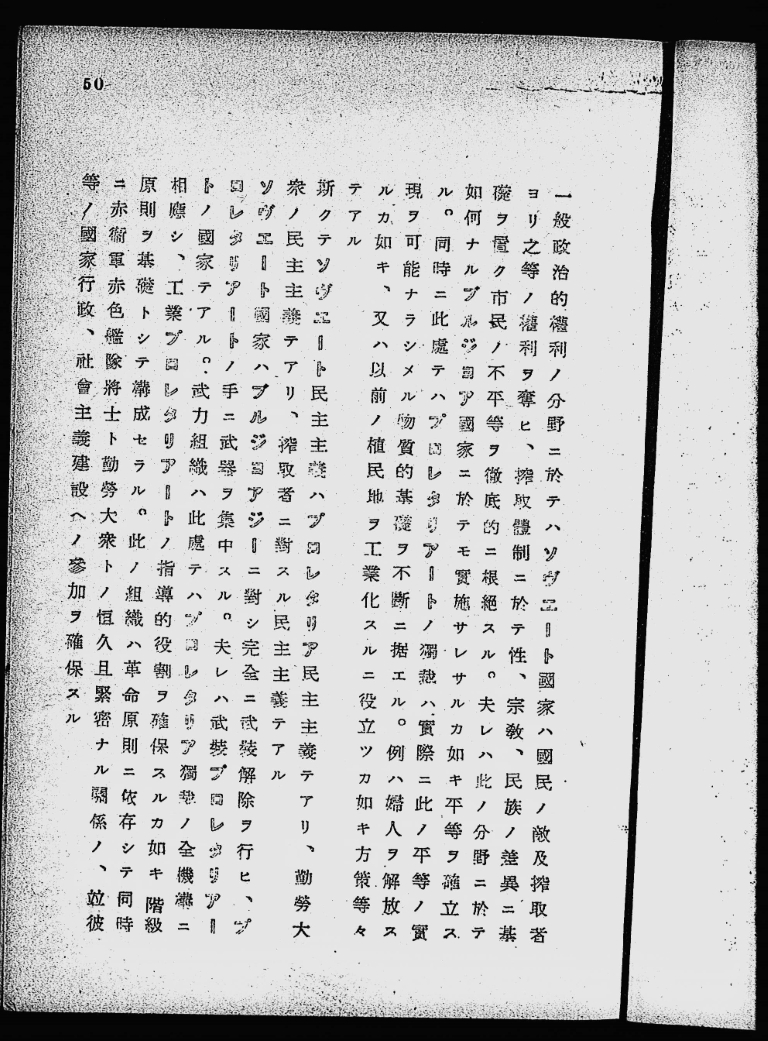 50
一般政治的權利ノ分野ニ於テハソヴエート國家ハ國民ノ敵及搾取者
ヨリ之等ノ權利ヲ奪ヒ、搾取體制ニ於テ性、宗敎、民族ノ差異ニ基
礎ヲ置ク市民ノ不平等ヲ徹底的ニ根絕スル。夫レハ此ノ分野ニ於テ
如何ナルブルジヨア國家ニ於テモ實施サレサルカ如キ平等ヲ確立ス
ル。同時ニ此處テハプロレタリアートノ獨裁ハ實際ニ此ノ平等ノ實
現ヲ可能ナラシメル物質的基礎ヲ不斷ニ据エル。例ハ婦人ヲ解放ス
ルカ如キ、又ハ以前ノ植民地ヲ工業化スルニ役立ツカ如キ方策等々
テアル
斯クテソヴエート民主主義ハプロレタリア民主主義テアリ、勤勞大
衆ノ民主主義テアリ、搾取者ニ對スル民主主義テアル
ソヴエート國家ハブルジヨアジーニ對シ完全ニ武裝解除ヲ行ヒ、プ
ロレタリアートノ手ニ武器ヲ集中スル。夫レハ武裝プロレタリアー
トノ國家テアル。武力組織ハ此處テハプロレタリア獨裁ノ全機構ニ
相應シ、工業プロレタリアートノ指導的役割ヲ確保スルカ如キ階級
原則ヲ基礎トシテ構成セラル。此ノ組織ハ革命原則ニ依存シテ同時
ニ赤衞軍赤色艦隊將士ト勤勞大衆トノ恒久且緊密ナル關係ノ、竝彼
等ノ國家行政、社會主義建設ヘノ參加ヲ確保スル